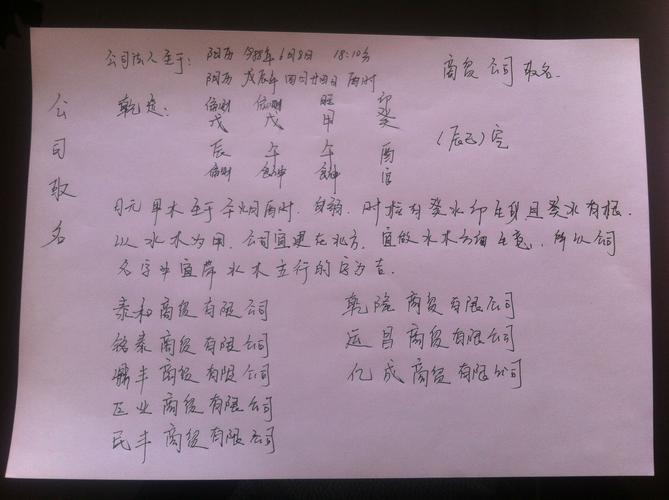 公司取名
商贸公司取名
公司法人生于: 阳历 年6月8日 18:10分
阴历 戊辰年四月廿四日酉时
乾造: 偏财 偏财 日 印
戊 戊 甲 癸
(辰巳)空
辰 午 午 酉
偏财 官
日元甲木生于午月酉时. 身弱. 时柱有癸水印生身且癸水有根.
以水木为用. 公司宜建在北方. 宜做水木方面生意. 所以公司
名字也宜带水木五行的字为吉.
泰和商贸有限公司
乾隆商贸有限公司
铭泰商贸有限公司
运昌商贸有限公司
鼎丰商贸有限公司
亿成商贸有限公司
正业商贸有限公司
民丰商贸有限公司